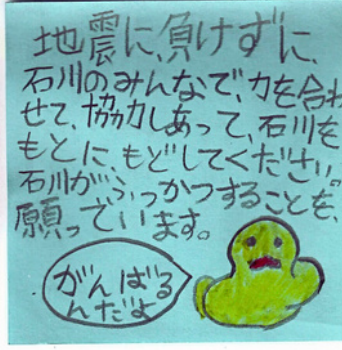 地震に、負けずに、
石川のみんなで、力を合わ
せて、協力しあって、石川を
もとに、もどしてください。
石川が、ふっかつすることを、
願っています。
がんばる
んだよ